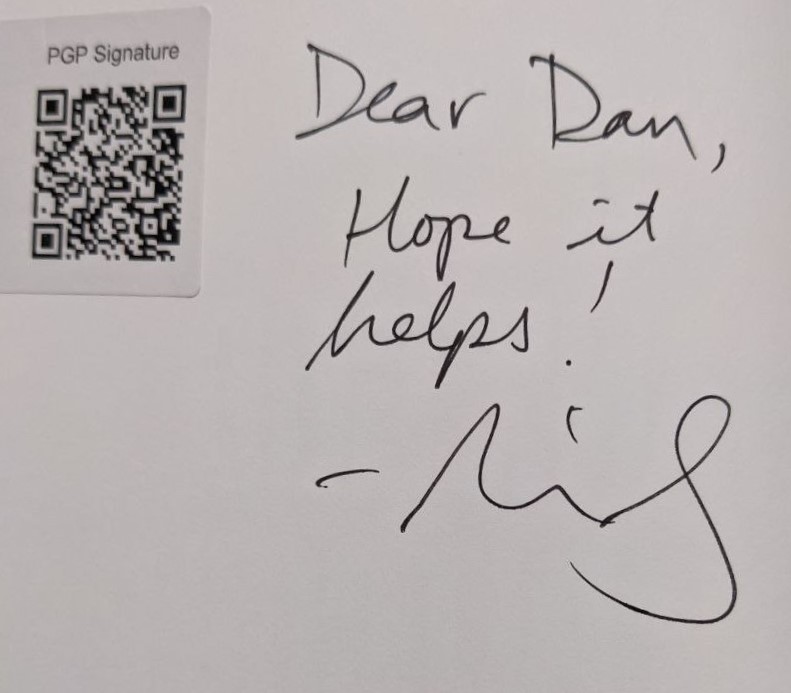 PGP Signature
Dear Dan,
Hope it
helps!